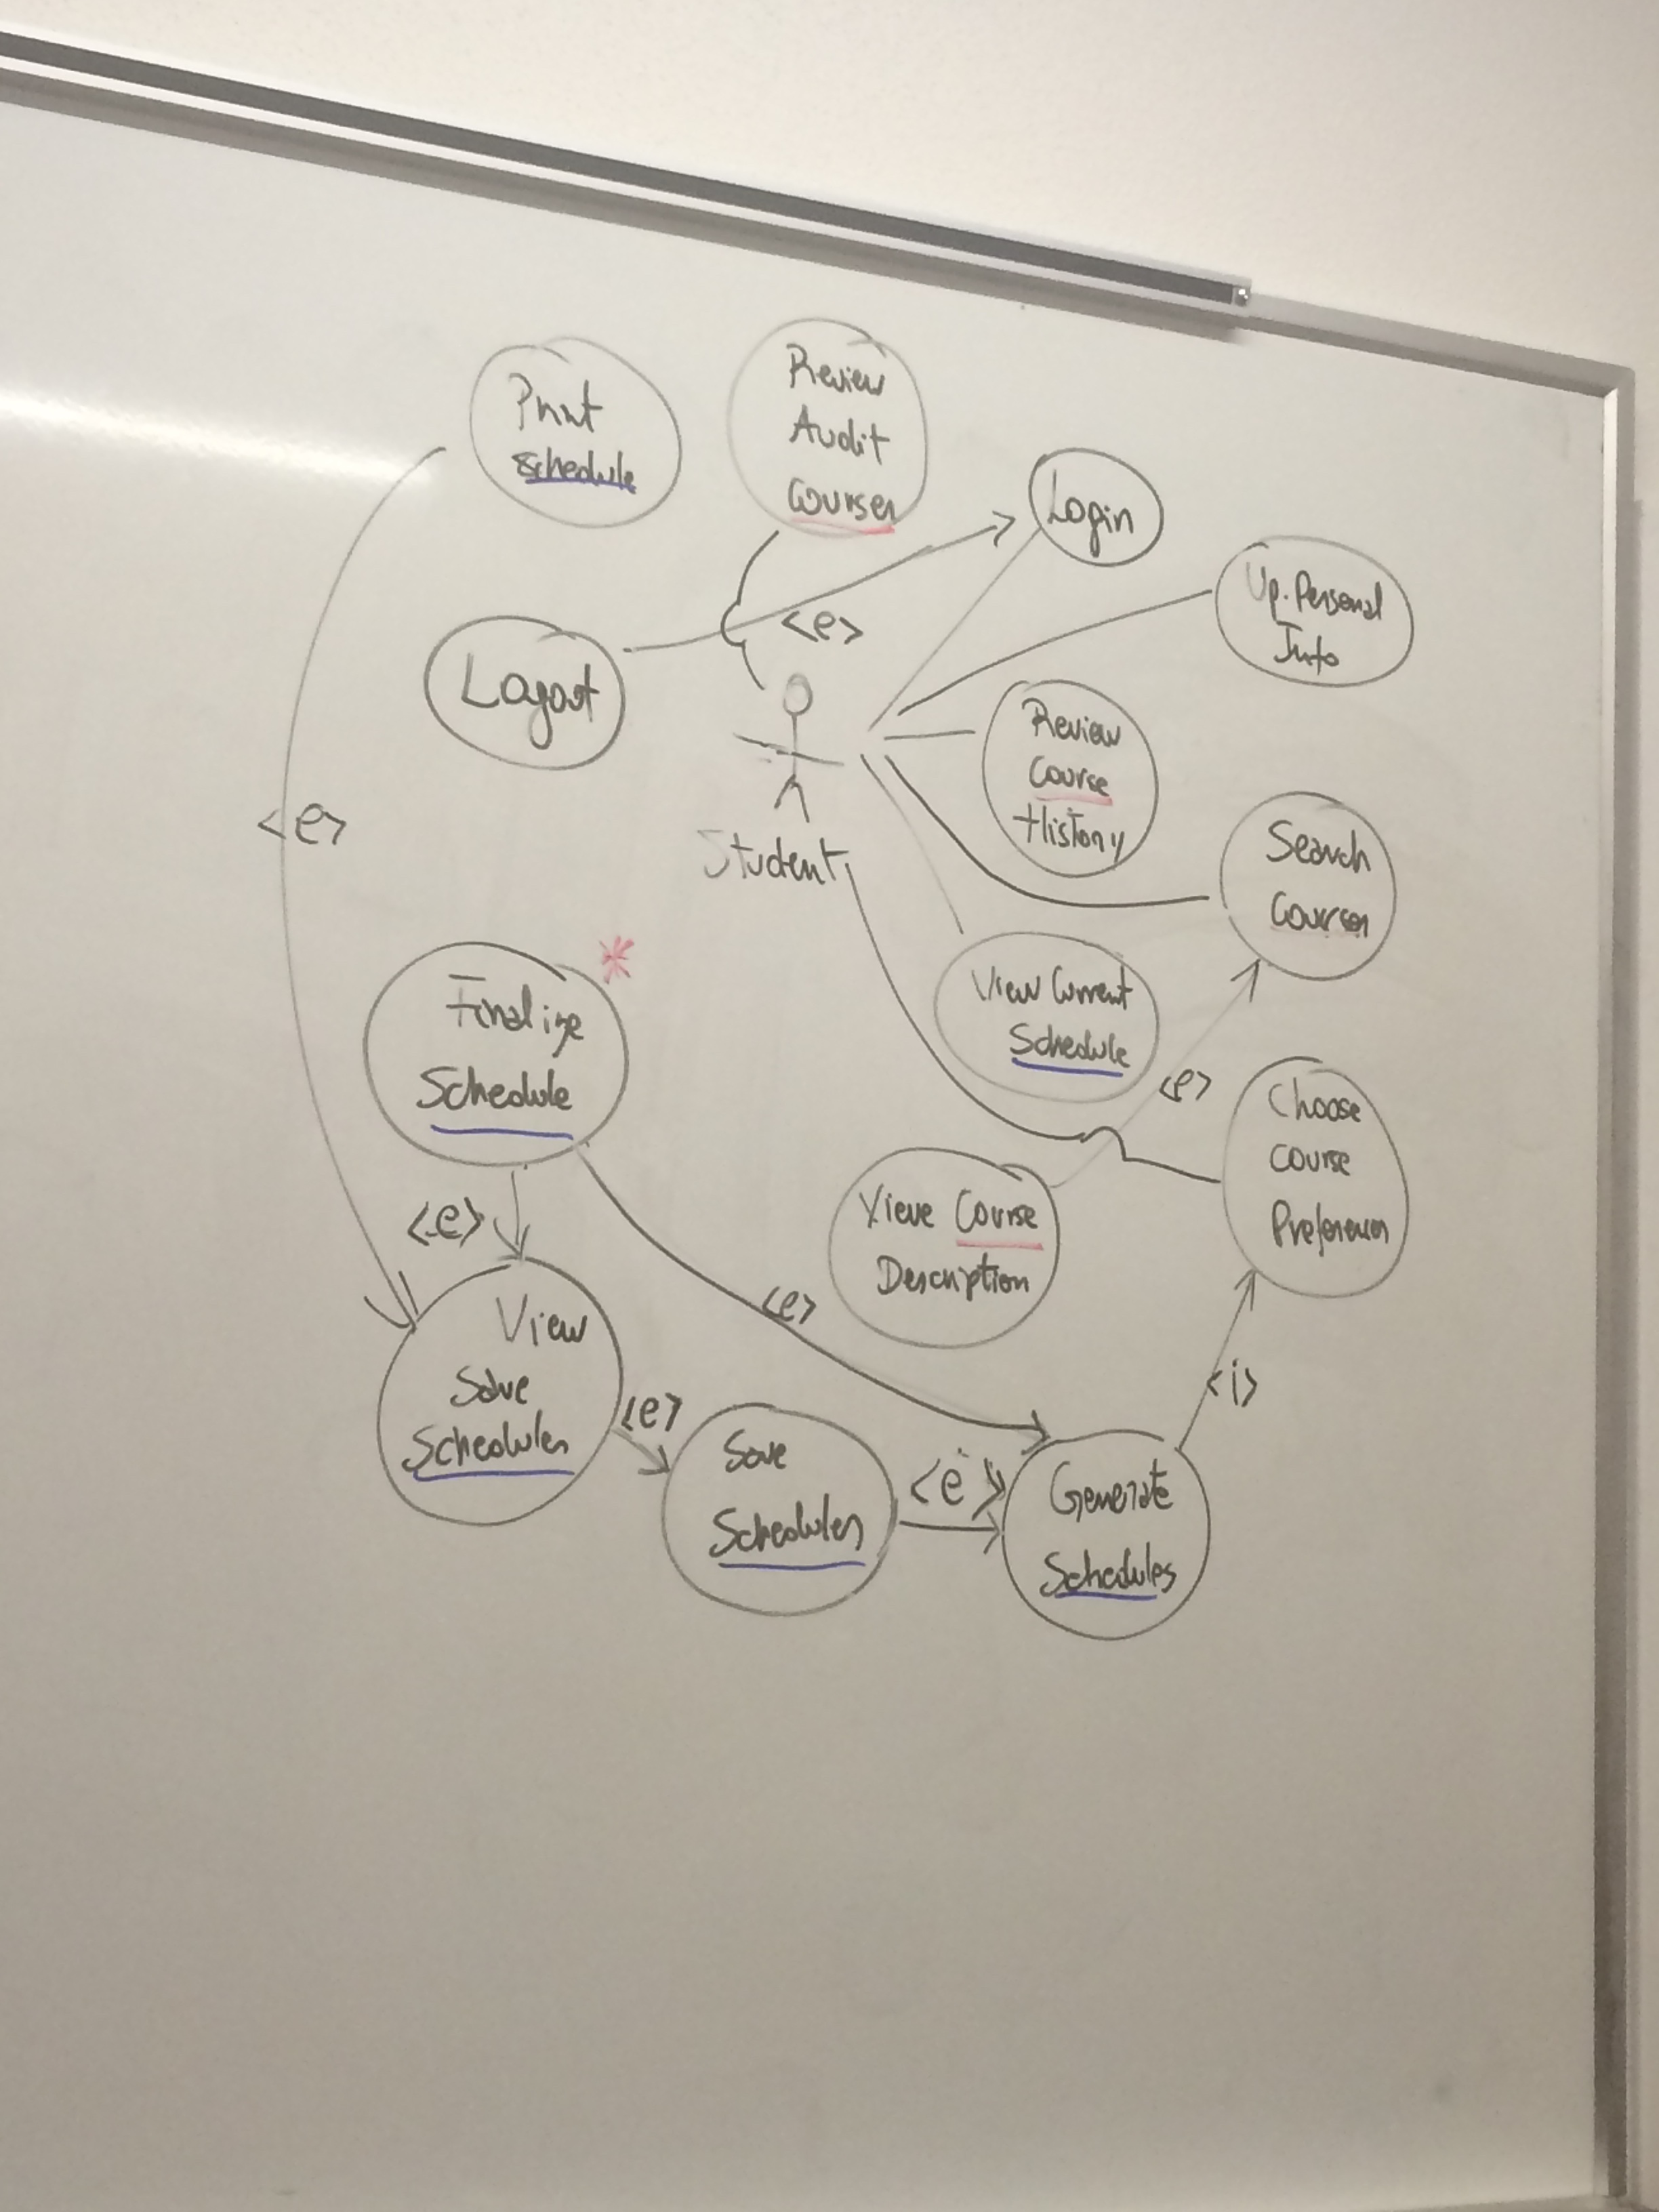 Print
Schedule
Review
Audit
Courses
Login
Up. Personal
Info
<e>
Logout
Review
Course
History
Student
<e>
Search
Courses
Finalize
Schedule
*
View Current
Schedule
<e>
Choose
Course
Preferences
View Course
Description
<e>
<e>
View
Save
Schedules
<i>
<e>
Save
Schedules
<e>
Generate
Schedules